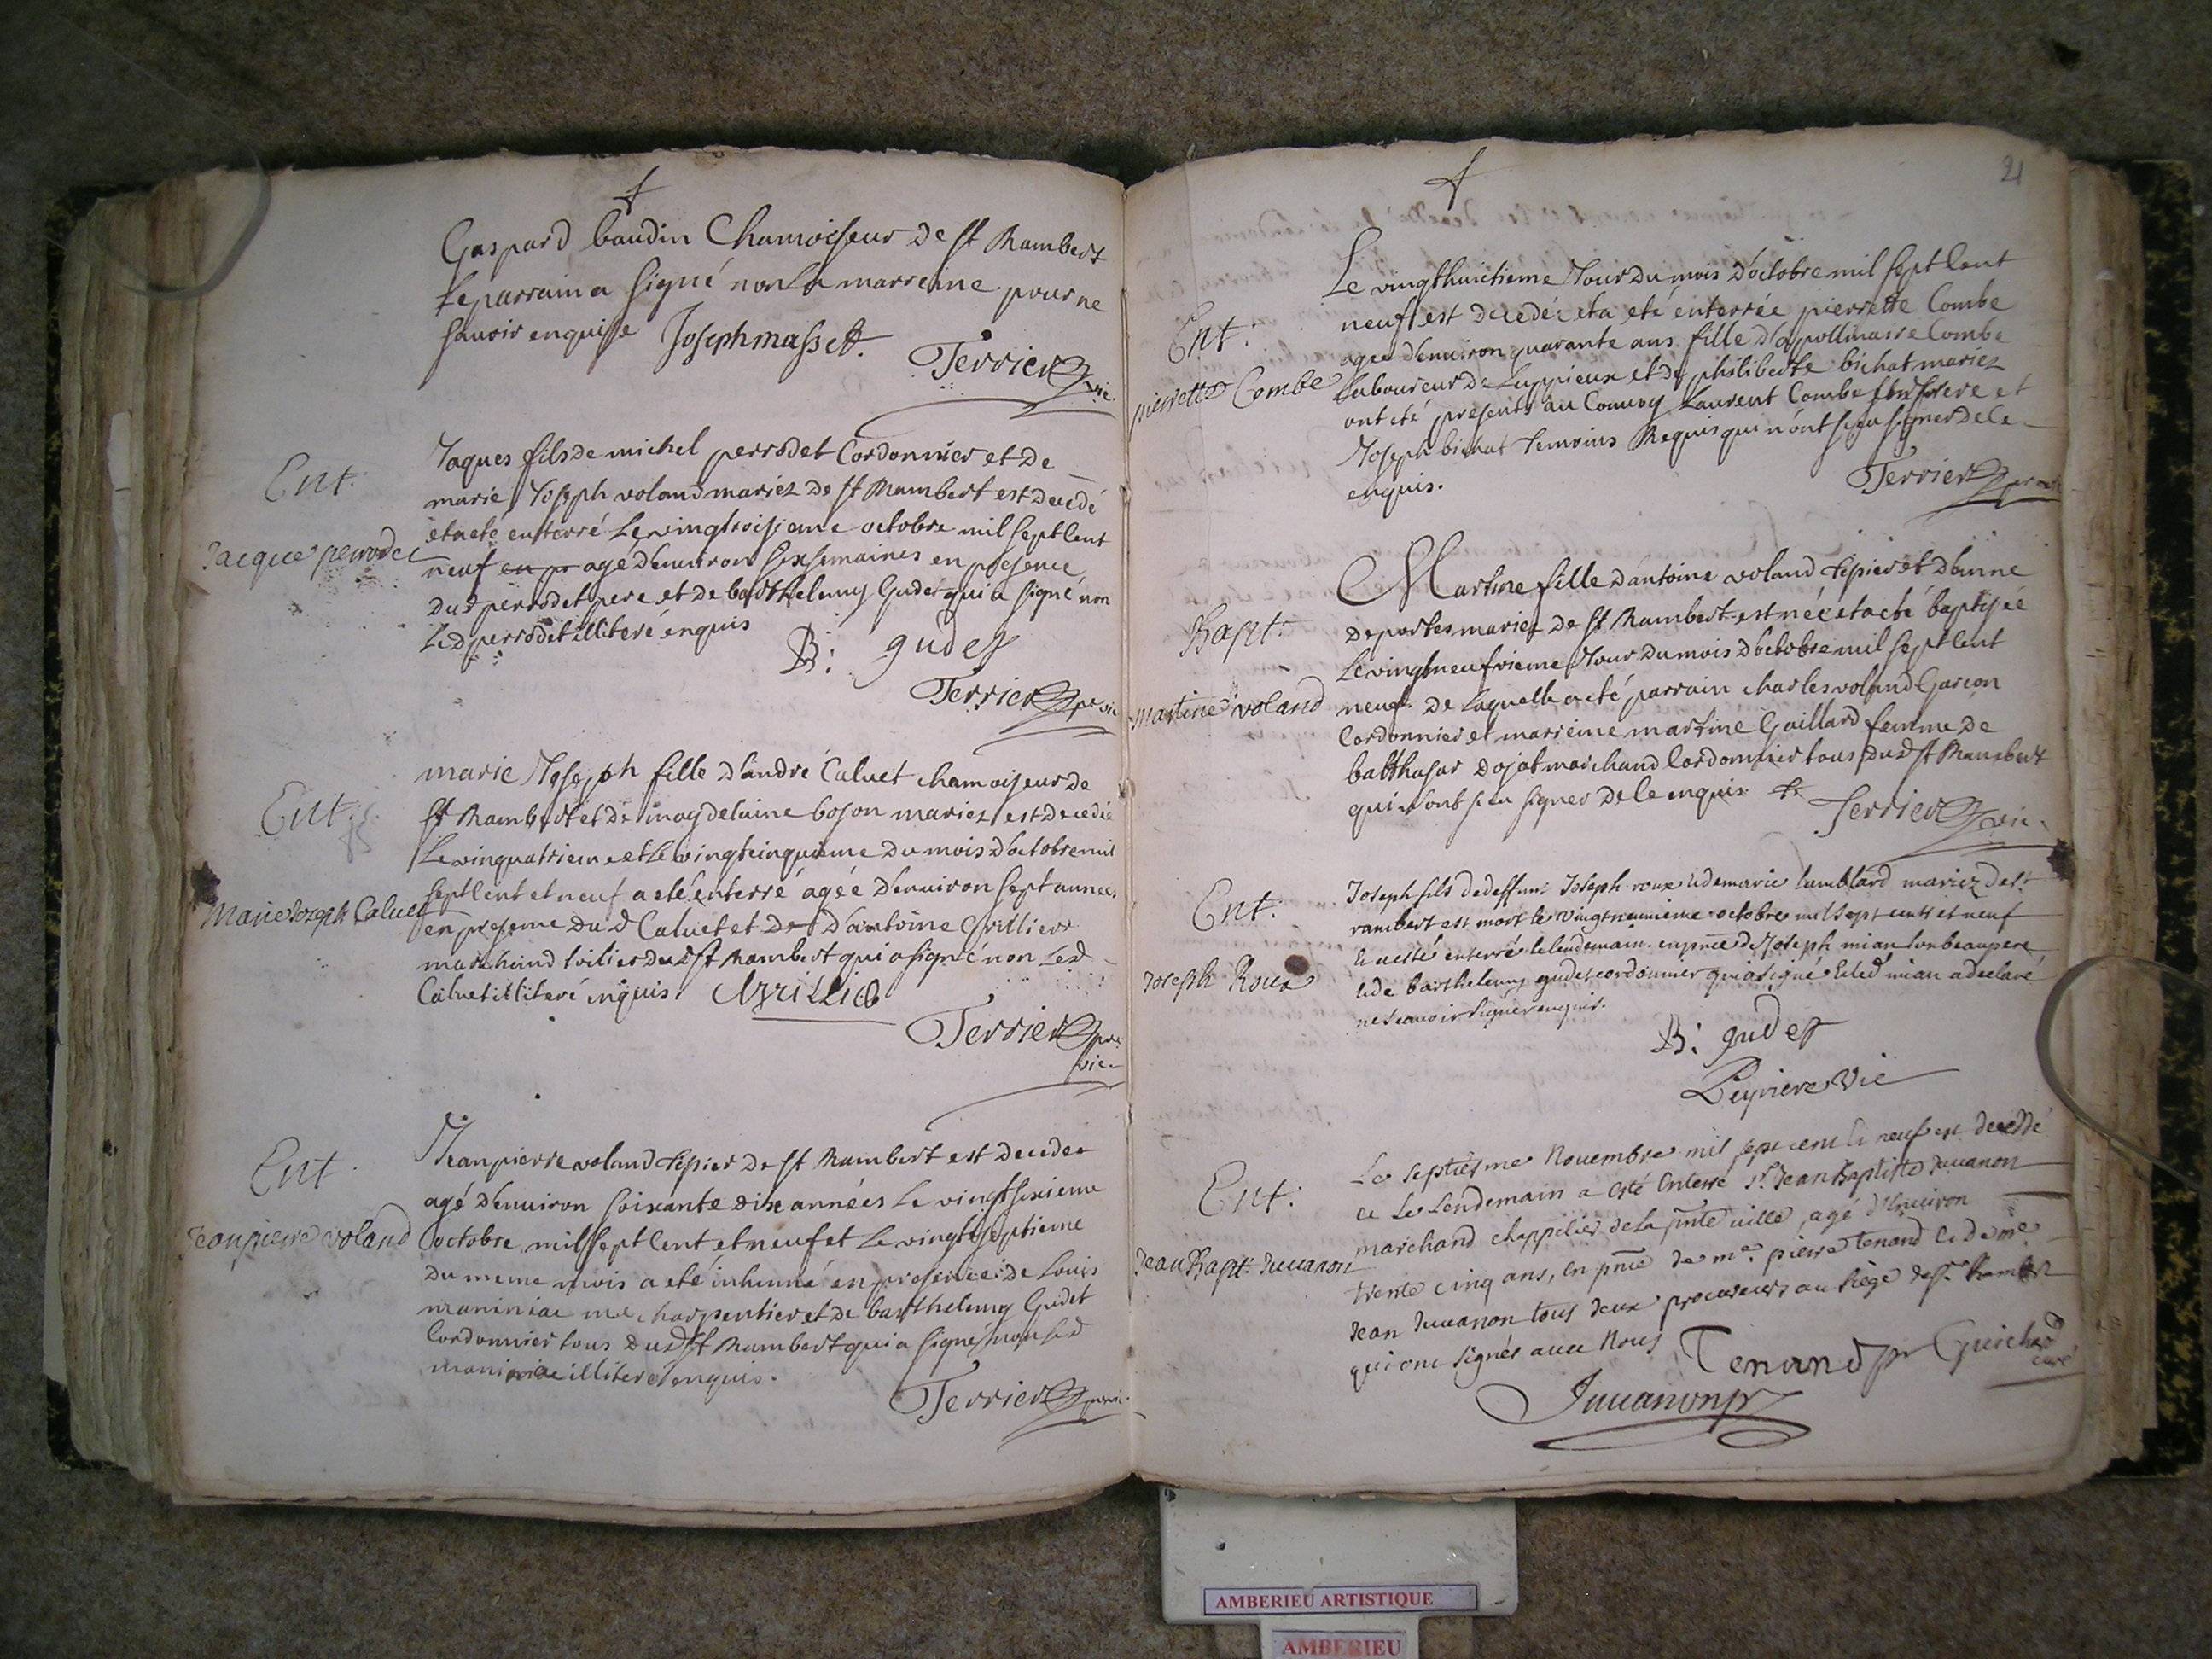 Gaspard baudin Chamoiseur de st Rambert
Le parrain a signé non la marreine pour ne
scavoir enquise Joseph masset.
Terrier vic.
Ent.
Jacque perrodet
Jaques fils de michel perrodet Cordonnier et de
marie Joseph voland mariez de st Rambert est decedé
et a eté enterré Le vingtroisieme octobre mil sept Cent
neuf en pr agé d'environ six semaines en presence
dud perrodet pere et de barthelemy Gudet qui a signé non
Led perrodet illiteré enquis
B: gudet
Terrier pr vic
Ent.
Marie Joseph Caluet
marie Joseph fille d'andré Caluet chamoiseur de
st Rambert et de magdelaine boson mariez est decedée
Le vinquatrieme et Le vingtcinquieme du mois d'octobre mil
sept Cent et neuf a eté enterré agée d'environ sept années
en presence dud Caluet et de d'antoine Grillier
marchand toilier dud st Rambert qui a signé non Led
Caluet illiteré enquis.
Terrier pre
vic
Ent.
Jeanpierre voland
Jeanpierre voland tepier de st Rambert est decedee
agé d'environ soixante dix années Le vingt sixieme
octobre mil sept Cent et neuf et Le vingt septieme
du meme mois a eté inhumé en presence de Louis
maniniae me charpentier et de barthelemy Gudet
Cordonnier tous dud st Rambert qui a signé non Led
maniniae illiteré enquis.
Terrier
21
Ent.
pierrette Combe
Le vingthuictieme Jour du mois d'octobre mil sept Cent
neuf est decedée et a eté enterrée pierrette Combe
agee d'environ quarante ans fille d'appollinasre Combe
Laboureur de Luppieux et de philiberte bichat mariez
ont eté presents au Convoy Laurent Combe son frere et
Joseph bichat temoins Requis qui n'ont sceu signer de ce
enquis.
Terrier
Bapt.
martine voland
Martine fille d'antoine voland tepier et d'anne
deportes mariez de st Rambert est née et a eté baptisée
Le vingtneufvieme Jour du mois d'octobre mil sept Cent
neuf. de Laquelle a eté parrain charles voland Garcon
Cordonnier et marreine martine Gaillard femme de
balthasar dojat marchand Cordonnier tous dud st Rambert
qui n'ont sceu signer de Ce enquis
Terrier vic.
Ent.
Joseph Roux
Joseph fils de deffunt Joseph roux et de marie lamblard mariez de st
rambert est mort le vingt neuvieme octobre mil sept cents et neuf
et a esté enterré le lendemain. en pnce de Joseph mian son beaupere
et de barthelemy gudet cordonnier qui a signé et led mian a declaré
ne scavoir signer enquis.
B: gudet
Peyriere vic
Ent.
Jean Bapt. Juuanon
Le septiesme Nouembre mil sept cent et neuf est decedé
et Le Lendemain a esté Enterré Sr. Jean Baptiste Juuanon
marchand chappelier de la pnte ville, agé d'Enuiron
trente cinq ans, en pnce de me. pierre Tenand et de me
Jean Juuanon tous deux procureurs au siège de st. Rambert
qui ont signés auec Nous Tenand pr Guichard
curé
Juuanon pr
AMBERIEU ARTISTIQUE
AMBERIEU